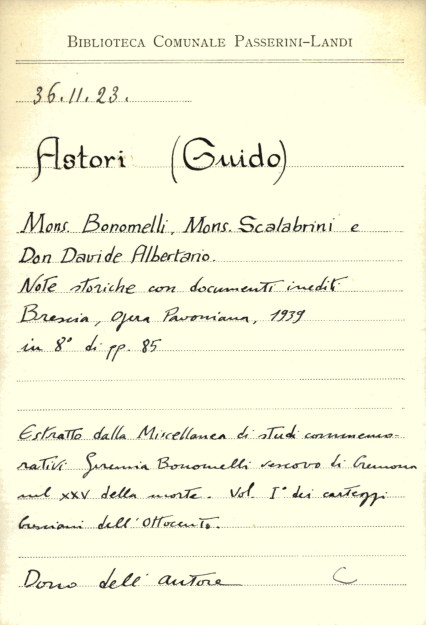 BIBLIOTECA COMUNALE PASSERINI-LANDI
36.11.23.
Astori (Guido)
Mons. Bonomelli, Mons. Scalabrini e
Don Davide Albertario.
Note storiche con documenti inediti
Brescia, Opera Pavoniana, 1939
in 8° di pp. 85
Estratto dalla Miscellanea di studi commemo-
rativi Geremia Bonomelli vescovo di Cremona
nel XXV della morte. Vol. I° dei carteggi
bresciani dell'Ottocento.
Dono dell'autore C